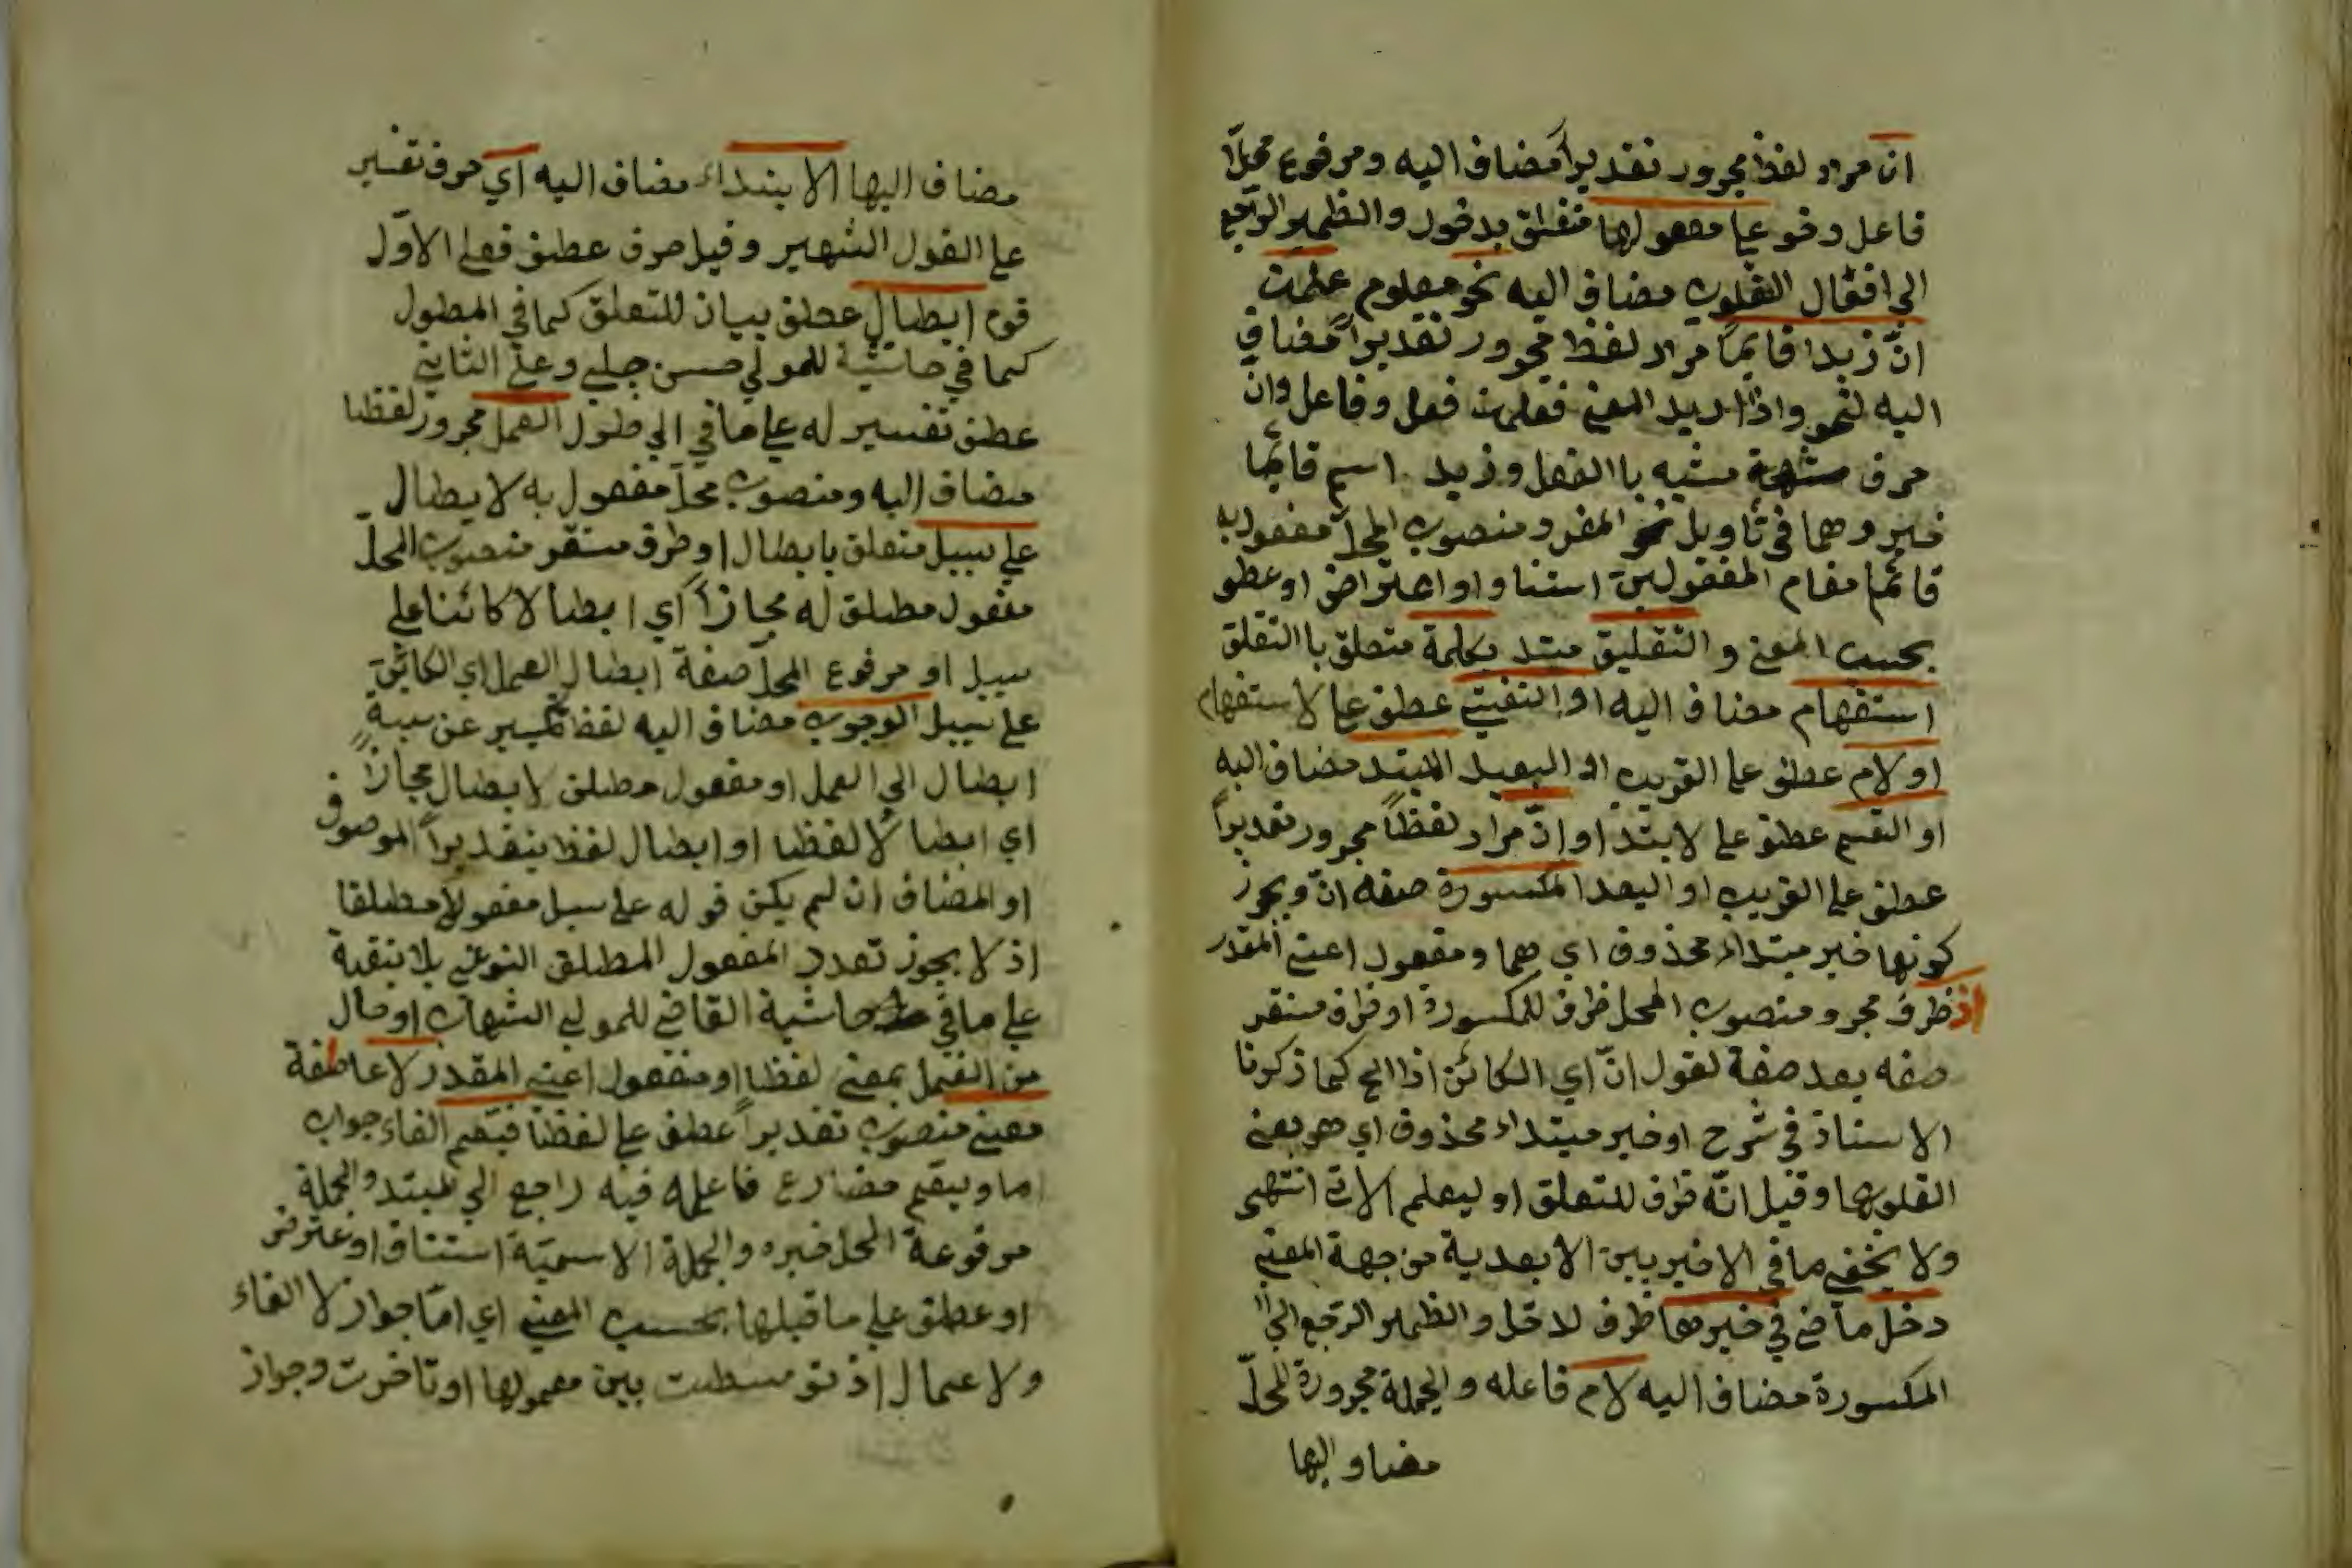 ان مراد لفظ مجرور تقديراً مضاف اليه ومرفوع محلّا
فاعل وقوع على مفعولها متعلق بدخول والظمير الراجع
الى افعال القلوب مضاف اليه نحو معلوم علمت
انّ زيدا قائما مراد لفظ مجرور تقديراً مضاف
اليه لنحو واذا اريد المعنى فعلمت فعل وفاعل وانّ
حرف مشبه باالفعل وزيد اسم قائما
خبر وهما في تأويل المفرد ومنصوب المحلّ مفعول به
قائما مقام المفعولين استناوا واعتراض او عطو
بحسب المعنى والتعليق مبتد بكلمة متعلق باالتعلق
استفهام مضاف اليه او النفي عطف على لاستفهام
او لام عطف على القريب او البعيد المبتد مضاف اليه
او القسم عطف على لابتدا وانّ مراد لفظاً مجرور تقديراً
عطف على القريب او البعد المكسورة صفه انّ ويجوز
كونها خبر مبتداء محذوف اي هما ومفعول اعنى المقدر
اذ ظرف مجرو منصوب المحل ظرف للمكسورة او ظرف مستقر
صفه بعد صفة لقول انّ اي الكائن اذا الخ كما ذكرنا
الاستاذ في شرح او خبر مبتداء محذوف اي هو بعنى
القلوبها وقيل انّه ظرف للتعلق او ليعلم الات انتهى
ولا يخفى ما في الاخير بين الابعدية من جهة المعنى
دخل ماض في خبرها ظرف لاخل والظمير الرجع الى
المكسورة مضاف اليه لام فاعله والجملة مجرورة المحلّ
مضاو اليها
مضاف اليها الابتداء مضاف اليه اي حرف تفسير
على القول الشهير وقيل حرف عطف فعلى الاوّل
قوله ابطال عطف بيان للتعلق كما في المطول
كما في حاشية للمولى حسن چلبي وعلى الثاني
عطف تفسير له على ما في الى طول العمل مجرور لفظا
مضاف اليه ومنصوب محلّ مفعول به لا بطال
على سبيل متعلق بابطال او ظرف مستقر منصوب المحلّ
مفعول مطلق له مجازاً اي ابطالا كائنا على
سبيل او مرفوع المحلّ صفة ابطال العمل اي الكائن
على سبيل الوجوب مضاف اليه لفظا تمييز عن سببة
ابطال الى العمل او مفعول مطلق لابطال مجازاً
اي ابطالا لفظا او ابطال لفظ بتقديراً الموصوف
او المضاف ان لم يكن قوله على سبل مفعولا مطلقا
اذ لا يجوز تعدد المفعول المطلق النوعى بلا تبعية
على ما في حاشية القاضى للمولى الشهاب او حال
من العمل بمعنى لفظا او مفعول اعنى المقدر لا عاطفة
معنى منصوب تقديراً عطف على لفظا فيقم الفاء جواب
اما ويقم مضارع فاعله فيه راجع الى المبتد والجملة
مرفوعة المحل خبره والجملة الاسميّة استناف او عترض
او عطف على ما قبلها بحسب المعنى اي امّا جواز لا الغاء
ولا عمال اذ توسطت بين معمولها او تاخرت وجواز